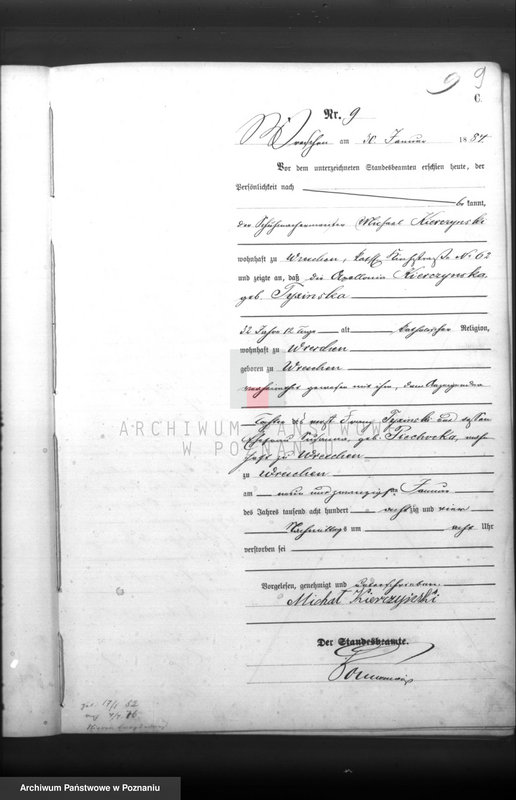 9 9
C.
Nr. 9
Wreschen am 30 Januar 1884.
Vor dem unterzeichneten Standesbeamten erschien heute, der
Persönlichkeit nach
be kannt,
der Schuhmachermeister Michael Kierczynski
wohnhaft zu Wreschen, Kirchstraße No 62
und zeigte an, daß die Apollonia Kierczynska
geb. Tyxinska
32 Jahre 12 Tage alt katholischer Religion,
wohnhaft zu Wreschen
geboren zu Wreschen
verheirathet gewesen mit ihm, dem Anzeigenden
Tochter des Tyxinski und dessen
Ehefrau Susanna, geb. Piechocka, wohn
haft zu Wreschen
zu Wreschen
am neun und zwanzigsten Januar
des Jahres tausend acht hundert achtzig und vier
Nachmittags um acht Uhr
verstorben sei
Vorgelesen, genehmigt und unterschrieben
Michał Kierczyński
Der Standesbeamte.
ARCHIWUM PAŃSTWOWE
W POZNANIU
Archiwum Państwowe w Poznaniu